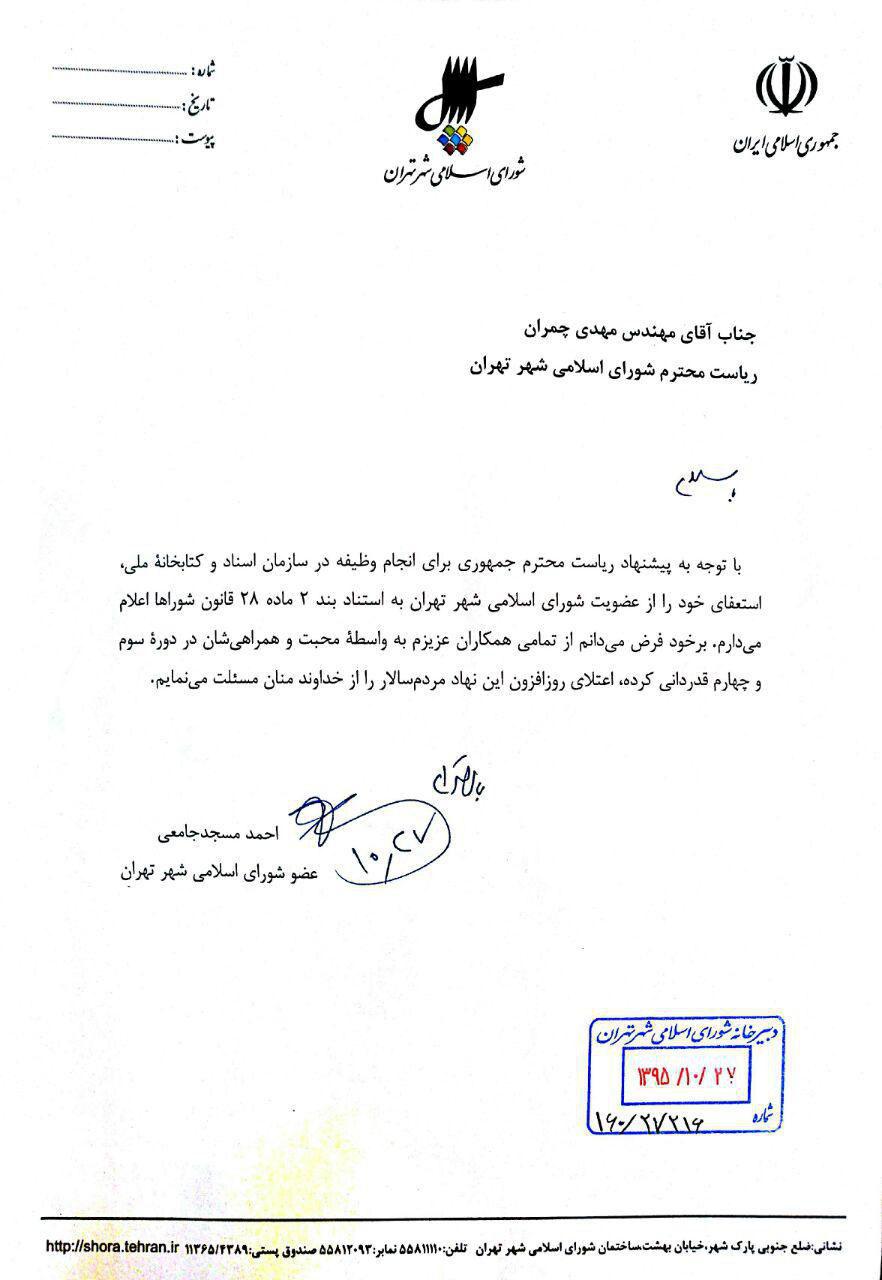 جمهوری اسلامی ایران
شورای اسلامی شهر تهران
شماره:
تاریخ:
پیوست:
جناب آقای مهندس مهدی چمران
ریاست محترم شورای اسلامی شهر تهران
با سلام
با توجه به پیشنهاد ریاست محترم جمهوری برای انجام وظیفه در سازمان اسناد و کتابخانۀ ملی،
استعفای خود را از عضویت شورای اسلامی شهر تهران به استناد بند ۲ ماده ۲۸ قانون شوراها اعلام
می‌دارم. برخود فرض می‌دانم از تمامی همکاران عزیزم به واسطۀ محبت و همراهی‌شان در دورۀ سوم
و چهارم قدردانی کرده، اعتلای روزافزون این نهاد مردم‌سالار را از خداوند منان مسئلت می‌نمایم.
با احترام
۱۰/۲۷
احمد مسجدجامعی
عضو شورای اسلامی شهر تهران
دبیرخانه شورای اسلامی شهر تهران
۱۳۹۵/۱۰/۲۷
شماره ۱۶۰/۲۷۲۱۶
نشانی:ضلع جنوبی پارک شهر،خیابان بهشت،ساختمان شورای اسلامی شهر تهران تلفن:۵۵۸۱۱۱۱۰ نمابر:۵۵۸۱۲۰۹۳ صندوق پستی:۱۱۳۶۵/۴۳۸۹ http://shora.tehran.ir